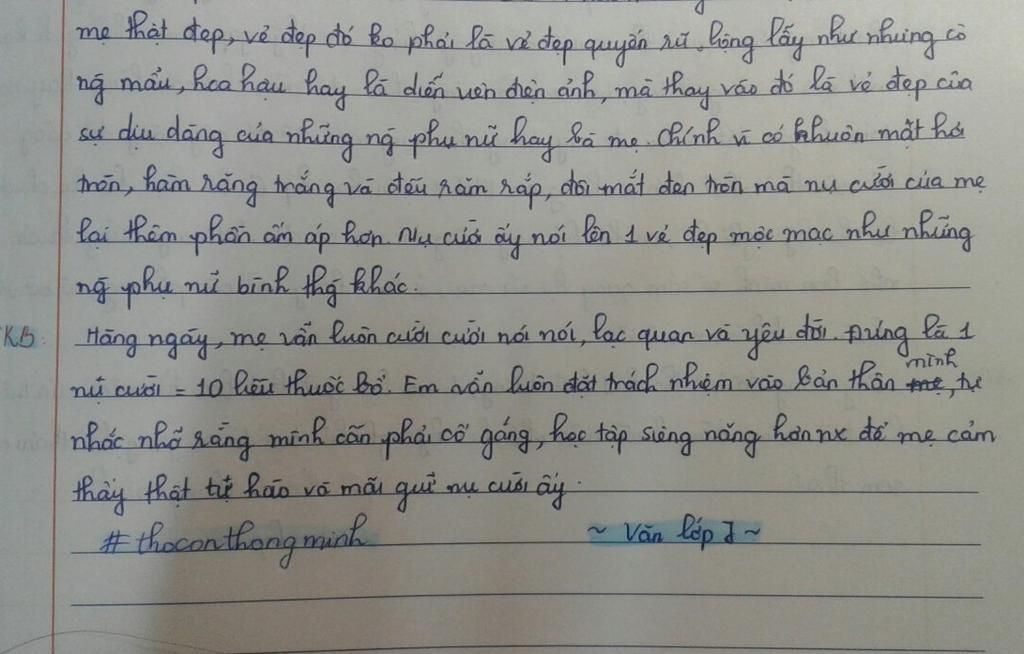 mẹ thật đẹp, vẻ đẹp đó ko phải là vẻ đẹp quyến rũ, lộng lẫy như nhưng cô
ng mẫu, hoa hậu hay là diễn viên điện ảnh, mà thay vào đó là vẻ đẹp của
sự dịu dàng của những ng phụ nữ hay bà mẹ. Chính vì có khuôn mặt hơi
tròn, hàm răng trắng và đều răm rắp, đôi mắt đen tròn mà nụ cười của mẹ
lại thêm phần ấm áp hơn. Nụ cười ấy nói lên 1 vẻ đẹp mộc mạc như những
ng phụ nữ bình thg khác.
KB: Hàng ngày, mẹ vẫn luôn cười cười nói nói, lạc quan và yêu đời. Đúng là 1
nụ cười = 10 liều thuốc bổ. Em vẫn luôn đặt trách nhiệm vào bản thân mình, tự
nhắc nhở rằng mình cần phải cố gắng, học tập siêng năng hơn nx để mẹ cảm
thấy thật tự hào và mãi giữ nụ cười ấy.
#thoconthongminh ~ Văn lớp 7 ~